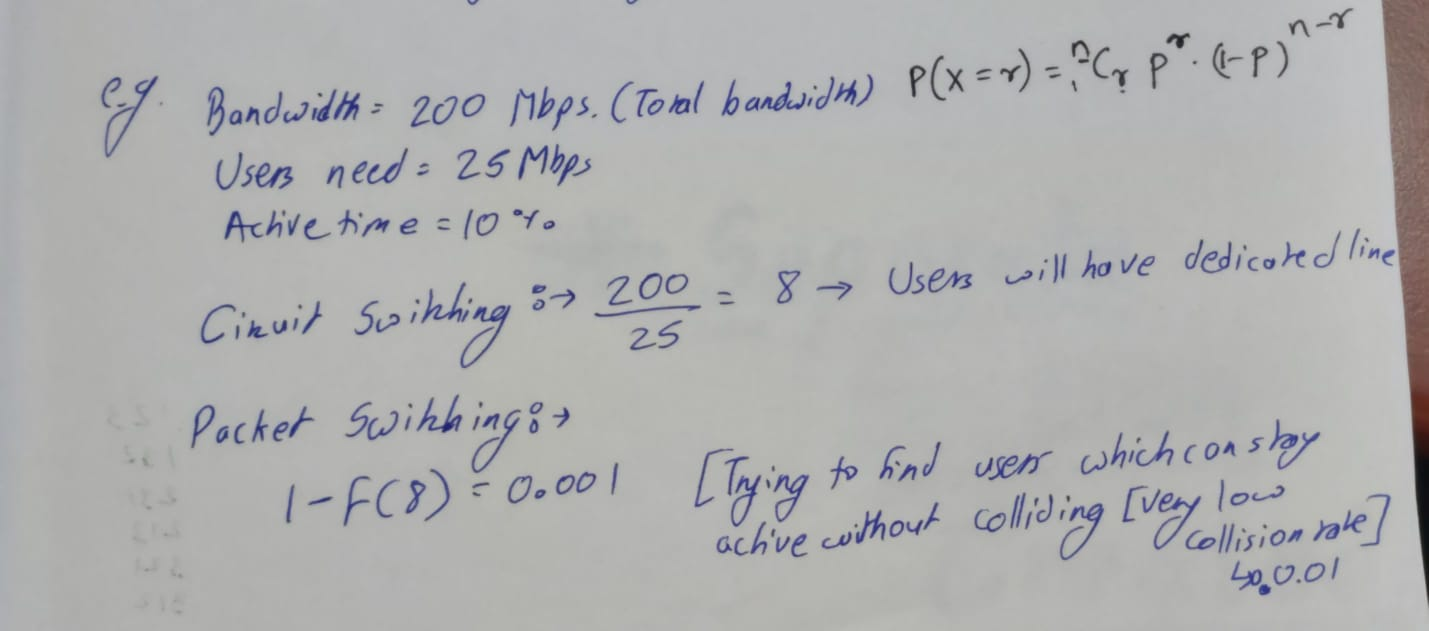 e.g. Bandwidth = 200 Mbps. (Total bandwidth) P(x=r) = ⁿCᵣ pʳ. (1-p)ⁿ⁻ʳ
Users need = 25 Mbps
Active time = 10 %
Circuit Switching :→ 200/25 = 8 → Users will have dedicated line
Packet Switching :→
1-F(8) = 0.001 [Trying to find users which can stay
active without colliding [Very low
collision rate]
↳ 0.01